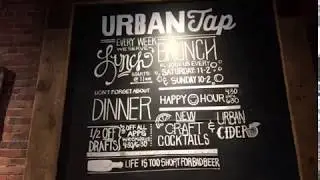 URBAN Tap
EVERY WEEK
WE SERVE
Lunch
STARTS
@ 11AM
BRUNCH
JOIN US EVERY
SATURDAY 11-2
SUNDAY 10-2
DON'T FORGET ABOUT
DINNER
HAPPY HOUR
1/2 OFF
DRAFTS!
OFF ALL
APPS
NEW
CRAFT
COCKTAILS
URBAN
CIDER
LIFE IS TOO SHORT FOR BAD BEER